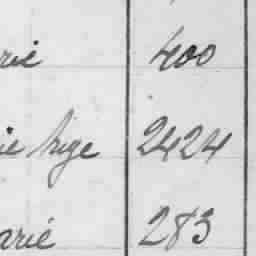 rie 400
ie Lige 2424
arie 283